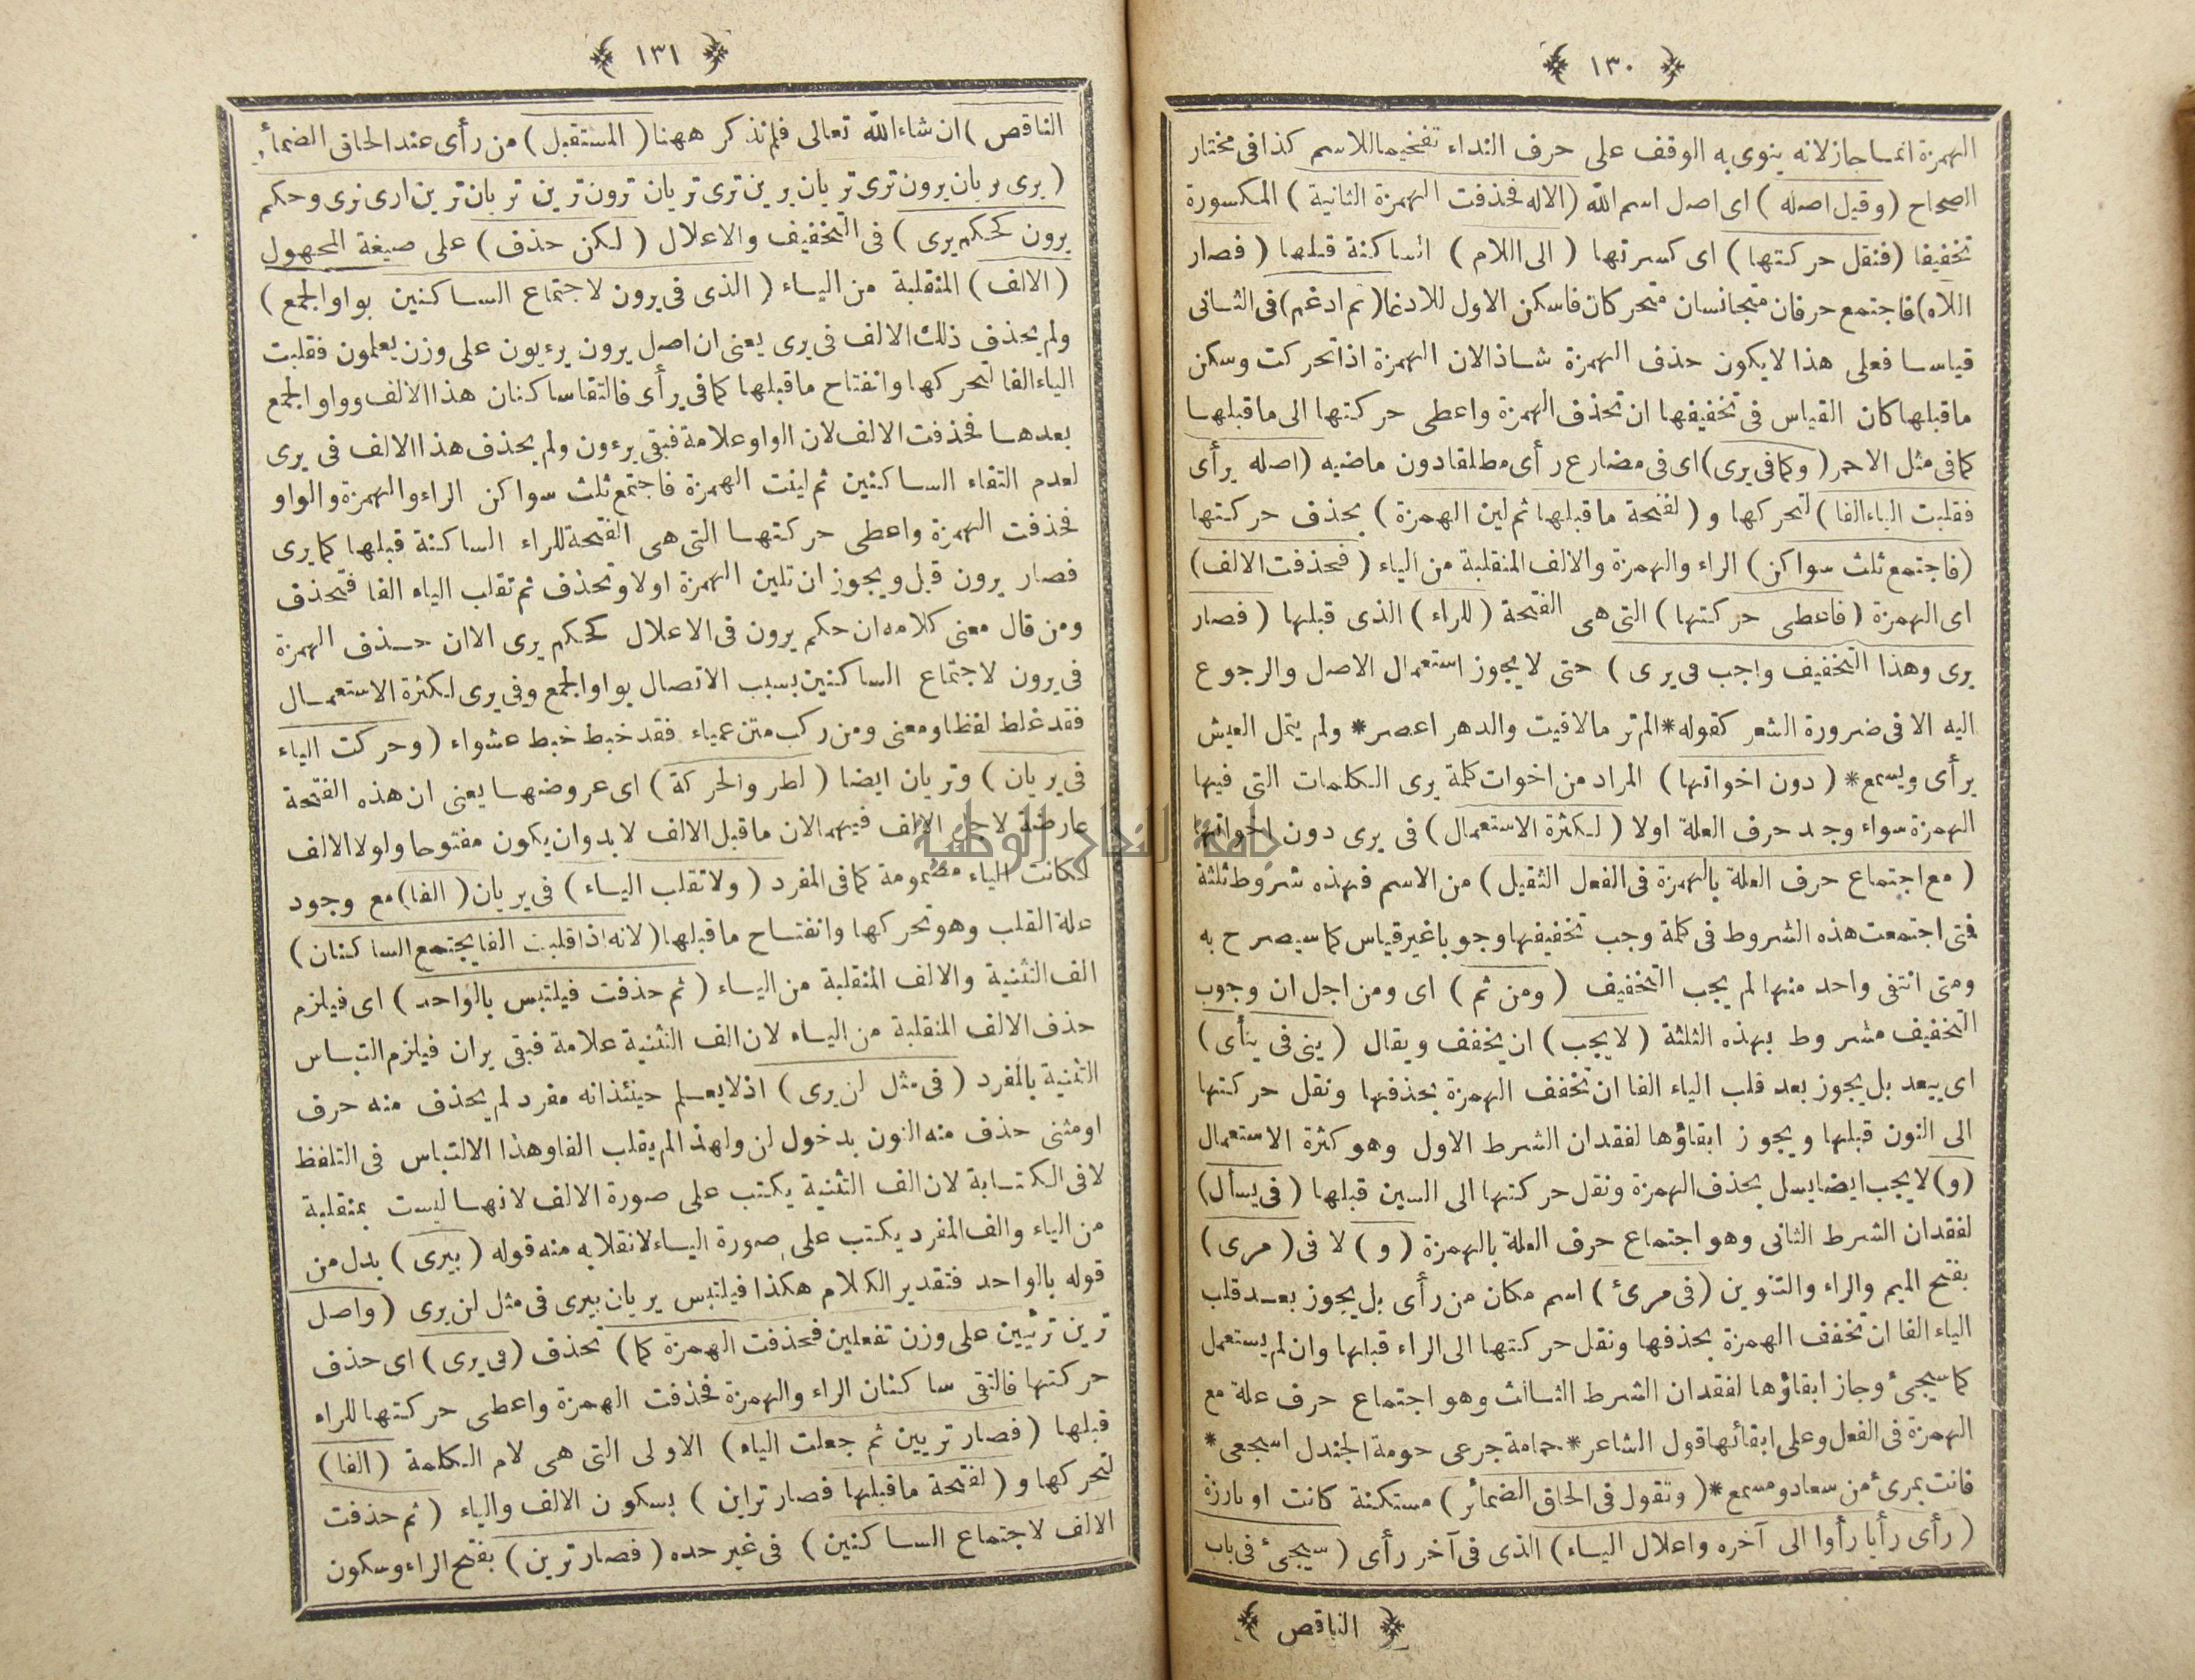 ١٣٠
الهمزة انما جاز لانه ينوى به الوقف على حرف النداء تفخيما للاسم كذا فى مختار
الصحاح (وقيل اصله) اى اصل اسم الله (الاله فحذفت الهمزة الثانية) المكسورة
تخفيفا (فنقل حركتها) اى كسرتها (الى اللام) الساكنة قبلها (فصار
اللاه) فاجتمع حرفان متجانسان متحركان فاسكن الاول للادغا (ثم ادغم) فى الثانى
قياسا فعلى هذا لا يكون حذف الهمزة شاذا لان الهمزة اذا تحركت وسكن
ما قبلها كان القياس فى تخفيفها ان تحذف الهمزة واعطى حركتها الى ما قبلها
كما فى مثل الاحمر (وكما فى يرى) اى فى مضارع رأى مطلقا دون ماضيه (اصله يرأى
فقلبت الياء الفا) لتحركها و (لفتحة ما قبلها ثم لين الهمزة) بحذف حركتها
(فاجتمع ثلث سواكن) الراء والهمزة والالف المنقلبة من الياء (فحذفت الالف)
اى الهمزة (فاعطى حركتها) التى هى الفتحة (للراء) الذى قبلها (فصار
يرى وهذا التخفيف واجب فى يرى) حتى لا يجوز استعمال الاصل والرجوع
اليه الا فى ضرورة الشعر كقوله * الم تر ما لاقيت والدهر اعصر * ولم يتمل العيش
يرأى ويسمع * (دون اخواتها) المراد من اخوات كلمة يرى الكلمات التى فيها
الهمزة سواء وجد حرف العلة اولا (لكثرة الاستعمال) فى يرى دون اخواتها
(مع اجتماع حرف العلة بالهمزة فى الفعل الثقيل) من الاسم فهذه شروط ثلثة
فتى اجتمعت هذه الشروط فى كلمة وجب تخفيفها وجوبا غير قياس كما سيصرح به
ومتى انتفى واحد منها لم يجب التخفيف (ومن ثم) اى ومن اجل ان وجوب
التخفيف مشروط بهذه الثلثة (لا يجب) ان يخفف ويقال (ينى فى ينأى)
اى يبعد بل يجوز بعد قلب الياء الفا ان تخفف الهمزة بحذفها ونقل حركتها
الى النون قبلها ويجوز ابقاؤها لفقدان الشرط الاول وهو كثرة الاستعمال
(و) لا يجب ايضا يسل بحذف الهمزة ونقل حركتها الى السين قبلها (فى يسأل)
لفقدان الشرط الثانى وهو اجتماع حرف العلة بالهمزة (و) لا فى (مرى)
بفتح الميم والراء والتنوين (فى مرئ) اسم مكان من رأى بل يجوز بعد قلب
الياء الفا ان تخفف الهمزة بحذفها ونقل حركتها الى الراء قبلها وان لم يستعمل
كما سيجئ وجاز ابقاؤها لفقدان الشرط الثالث وهو اجتماع حرف علة مع
الهمزة فى الفعل وعلى ابقائها قول الشاعر * حمامة جرعى حومة الجندل اسجعى *
فانت بمرئ من سعاد ومسمع * (وتقول فى الحاق الضمائر) مستكنة كانت او بارزة
(رأى رأيا رأوا الى آخره واعلال الياء) الذى فى آخر رأى (سيجئ فى باب
الناقص
١٣١
الناقص) ان شاء الله تعالى فلم نذكر ههنا (المستقبل) من رأى عند الحاق الضمائر
(يرى يريان يرون ترى تريان يرين ترى تريان ترون ترين تريان ترين ارى نرى وحكم
يرون كحكم يرى) فى التخفيف والاعلال (لكن حذف) على صيغة المجهول
(الالف) المنقلبة من الياء (الذى فى يرون لاجتماع الساكنين بواو الجمع)
ولم يحذف ذلك الالف فى يرى يعنى ان اصل يرون يرءيون على وزن يعلمون فقلبت
الياء الفا لتحركها وانفتاح ما قبلها كما فى يرأى فالتقا ساكنان هذا الالف وواو الجمع
بعدها فحذفت الالف لان الواو علامة فبقى يرءون ولم يحذف هذا الالف فى يرى
لعدم التقاء الساكنين ثم لينت الهمزة فاجتمع ثلث سواكن الراء والهمزة والواو
فحذفت الهمزة واعطى حركتها التى هى الفتحة للراء الساكنة قبلها كما يرى
فصار يرون قبل ويجوز ان تلين الهمزة اولا وتحذف ثم تقلب الياء الفا فتحذف
ومن قال معنى كلامه ان حكم يرون فى الاعلال كحكم يرى الا ان حذف الهمزة
فى يرون لاجتماع الساكنين بسبب الاتصال بواو الجمع وفى يرى لكثرة الاستعمال
فقد غلط لفظا ومعنى ومن ركب متن عمياء فقد خبط خبط عشواء (وحركت الياء
فى يريان) وتريان ايضا (لطرو الحركة) اى عروضها يعنى ان هذه الفتحة
عارضة لاجل الالف فيهما لان ما قبل الالف لا بد وان يكون مفتوحا ولولا الالف
لكانت الياء مضمومة كما فى المفرد (ولا تقلب الياء) فى يريان (الفا) مع وجود
علة القلب وهو تحركها وانفتاح ما قبلها (لانه اذا قلبت الفا يجتمع الساكنان)
الف التثنية والالف المنقلبة من الياء (ثم حذفت فيلتبس بالواحد) اى فيلزم
حذف الالف المنقلبة من الياء لان الف التثنية علامة فبقى يران فيلزم التباس
التثنية بالمفرد (فى مثل لن يرى) اذ لا يعلم حينئذ انه مفرد لم يحذف منه حرف
او مثنى حذف منه النون بدخول لن ولهذا لم يقلب الفا وهذا الالتباس فى التلفظ
لا فى الكتابة لان الف التثنية يكتب على صورة الالف لانها ليست بمنقلبة
من الياء والف المفرد يكتب على صورة الياء لانقلابه منه قوله (بيرى) بدل من
قوله بالواحد فتقدير الكلام هكذا فيلتبس يريان بيرى فى مثل لن يرى (واصل
ترين ترئيين على وزن تفعلين فحذفت الهمزة كما) تحذف (فى يرى) اى حذف
حركتها فالتقى ساكنان الراء والهمزة فحذفت الهمزة واعطى حركتها للراء
قبلها (فصار تريين ثم جعلت الياء) الاولى التى هى لام الكلمة (الفا)
لتحركها و (لفتحة ما قبلها فصار تراين) بسكون الالف والياء (ثم حذفت
الالف لاجتماع الساكنين) فى غير حده (فصار ترين) بفتح الراء وسكون
جامعة النجاح الوطنية